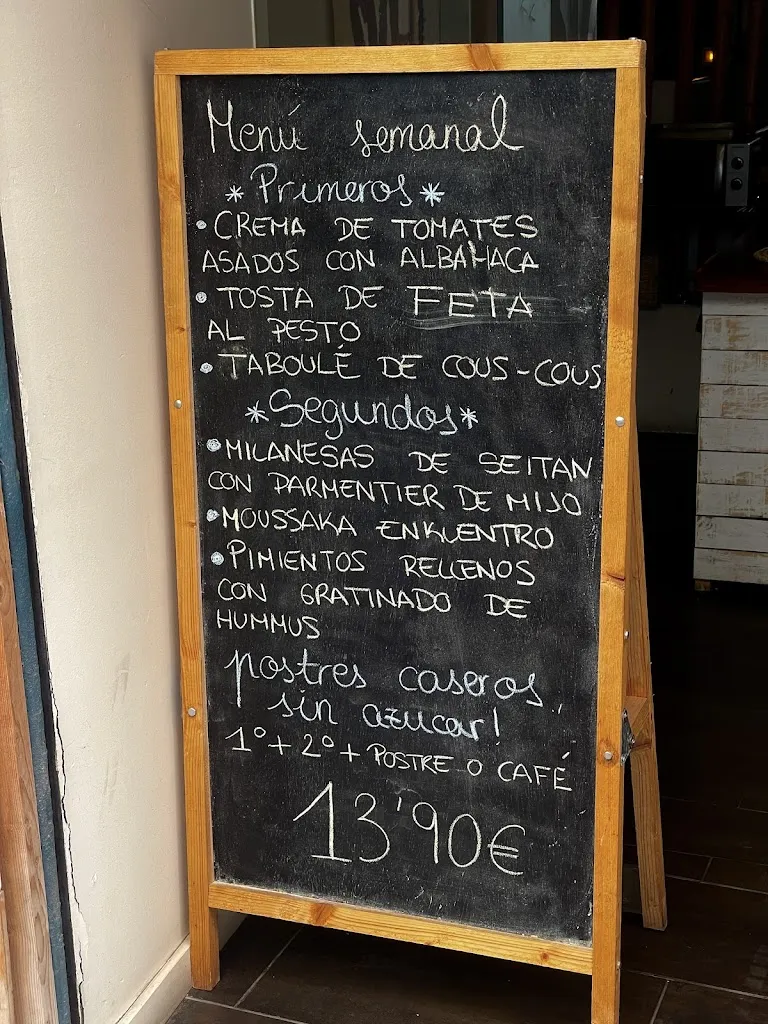 Menú semanal
* Primeros *
• CREMA DE TOMATES
ASADOS CON ALBAHACA
• TOSTA DE FETA
AL PESTO
• TABOULÉ DE COUS-COUS
* Segundos *
• MILANESAS DE SEITAN
CON PARMENTIER DE MIJO
• MOUSSAKA ENKUENTRO
• PIMIENTOS RELLENOS
CON GRATINADO DE
HUMMUS
postres caseros,
sin azucar!
1º + 2º + POSTRE O CAFÉ
13'90€